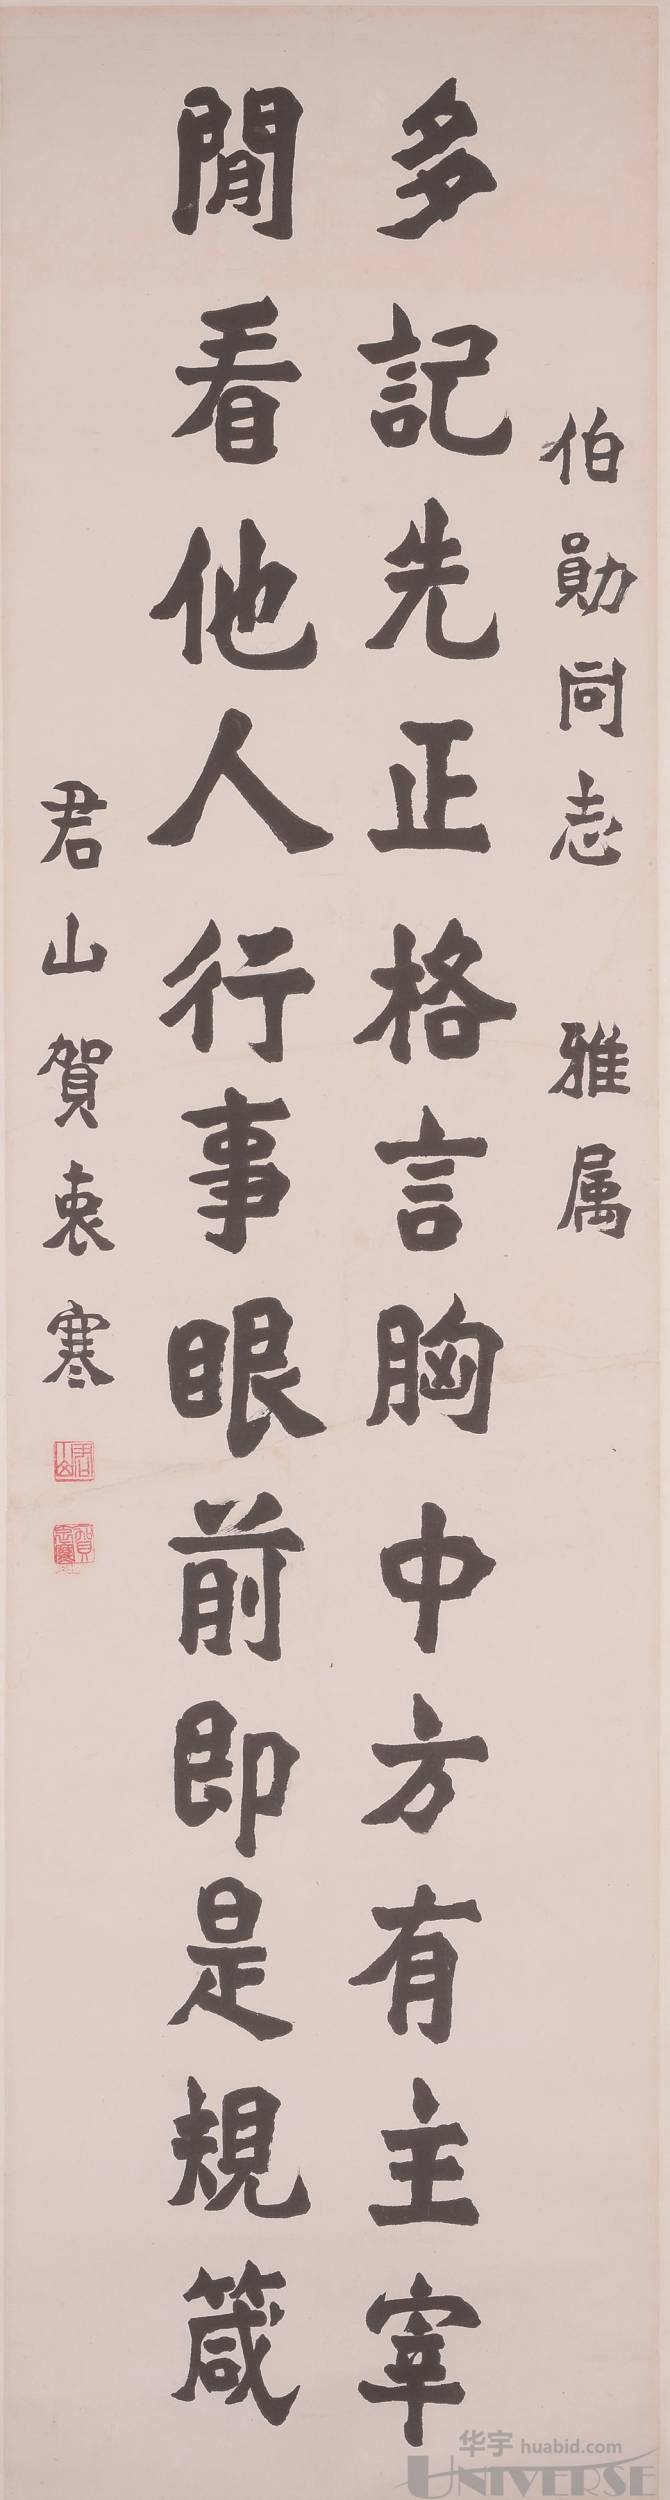 伯勛同志 雅属
多記先正格言胸中方有主宰
閒看他人行事眼前即是規箴
君山賀衷寒
君山
賀衷寒印
华宇 huabid.com
UNIVERSE